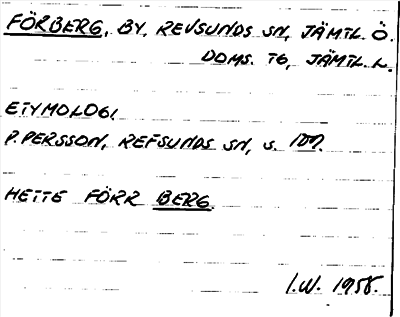 FÖRBERG, BY, REVSUNDS SN, JÄMTL. Ö.
DOMS. TG, JÄMTL. L.
ETYMOLOGI,
P. PERSSON, REFSUNDS SN, S. 107.
HETTE FÖRR BERG.
I.W. 1958.